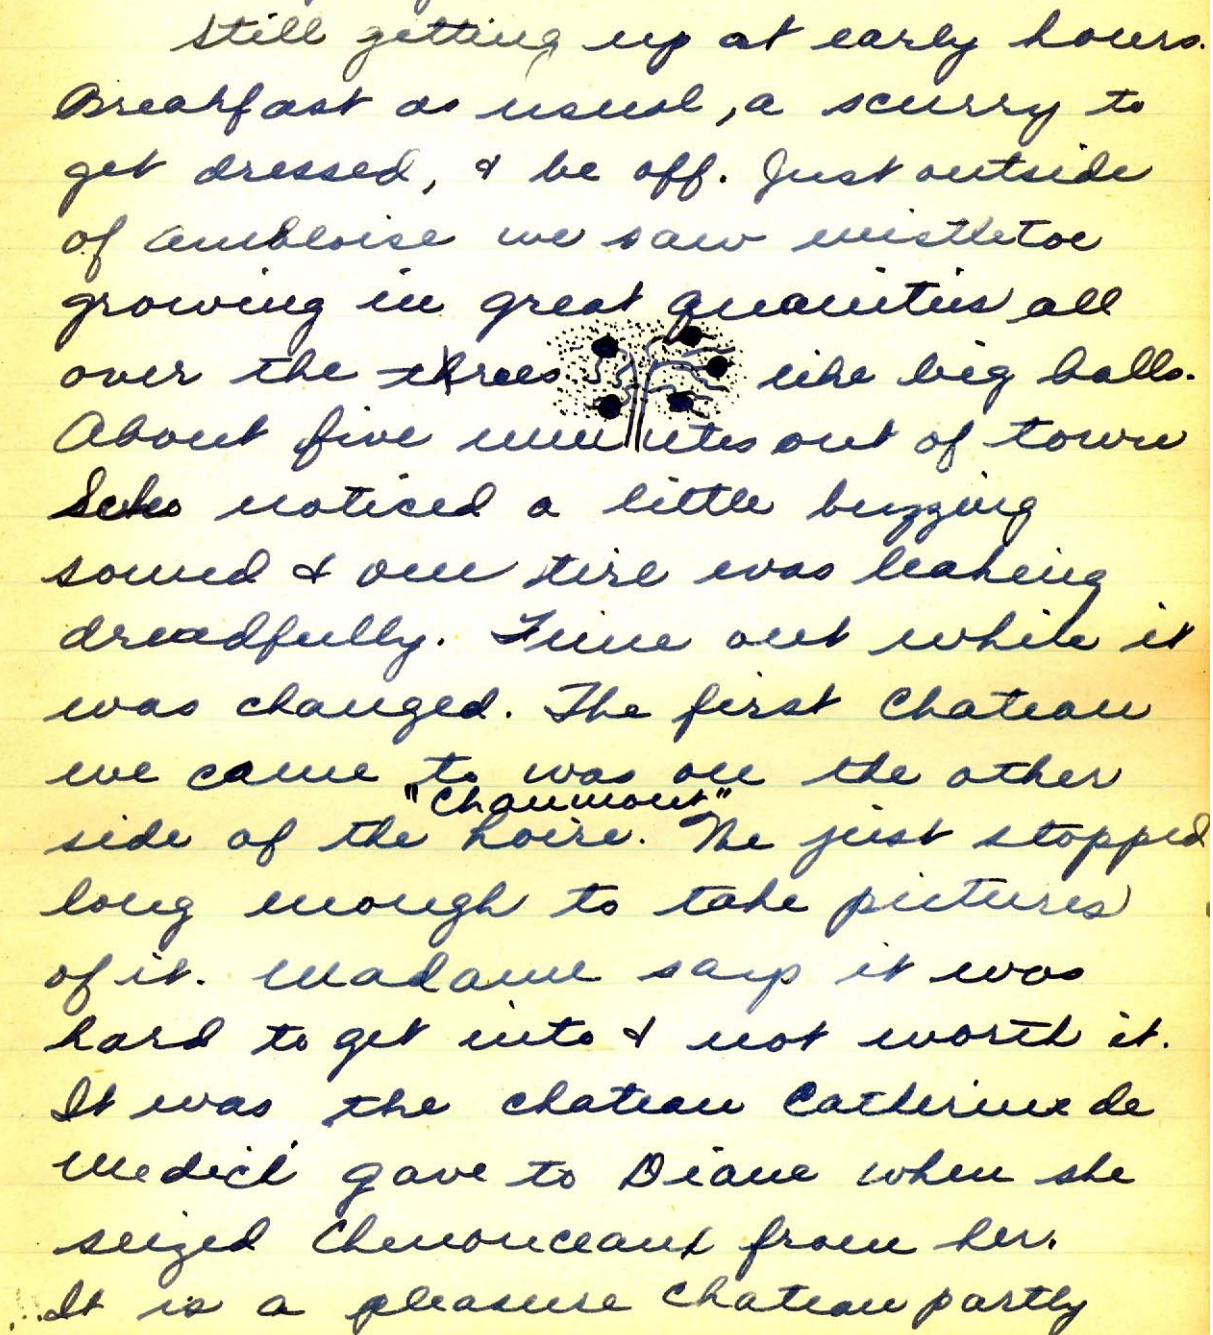 Still getting up at early hours.
Breakfast as usual, a scurry to
get dressed, & be off. Just outside
of Ambloise we saw mistletoe
growing in great quanities all
over the trees like big balls.
About five minutes out of town
noticed a little buzzing
sound & our tire was leaking
dreadfully. Time out while it
was changed. The first Chateau
we came to was on the other
"Chaumont"
side of the Loire. We just stopped
long enough to take pictures
of it. Madame says it was
hard to get into & not worth it.
It was the chateau Catherine de
Medici gave to Diane when she
seized Chenonceaux from her.
It is a pleasure Chateau partly